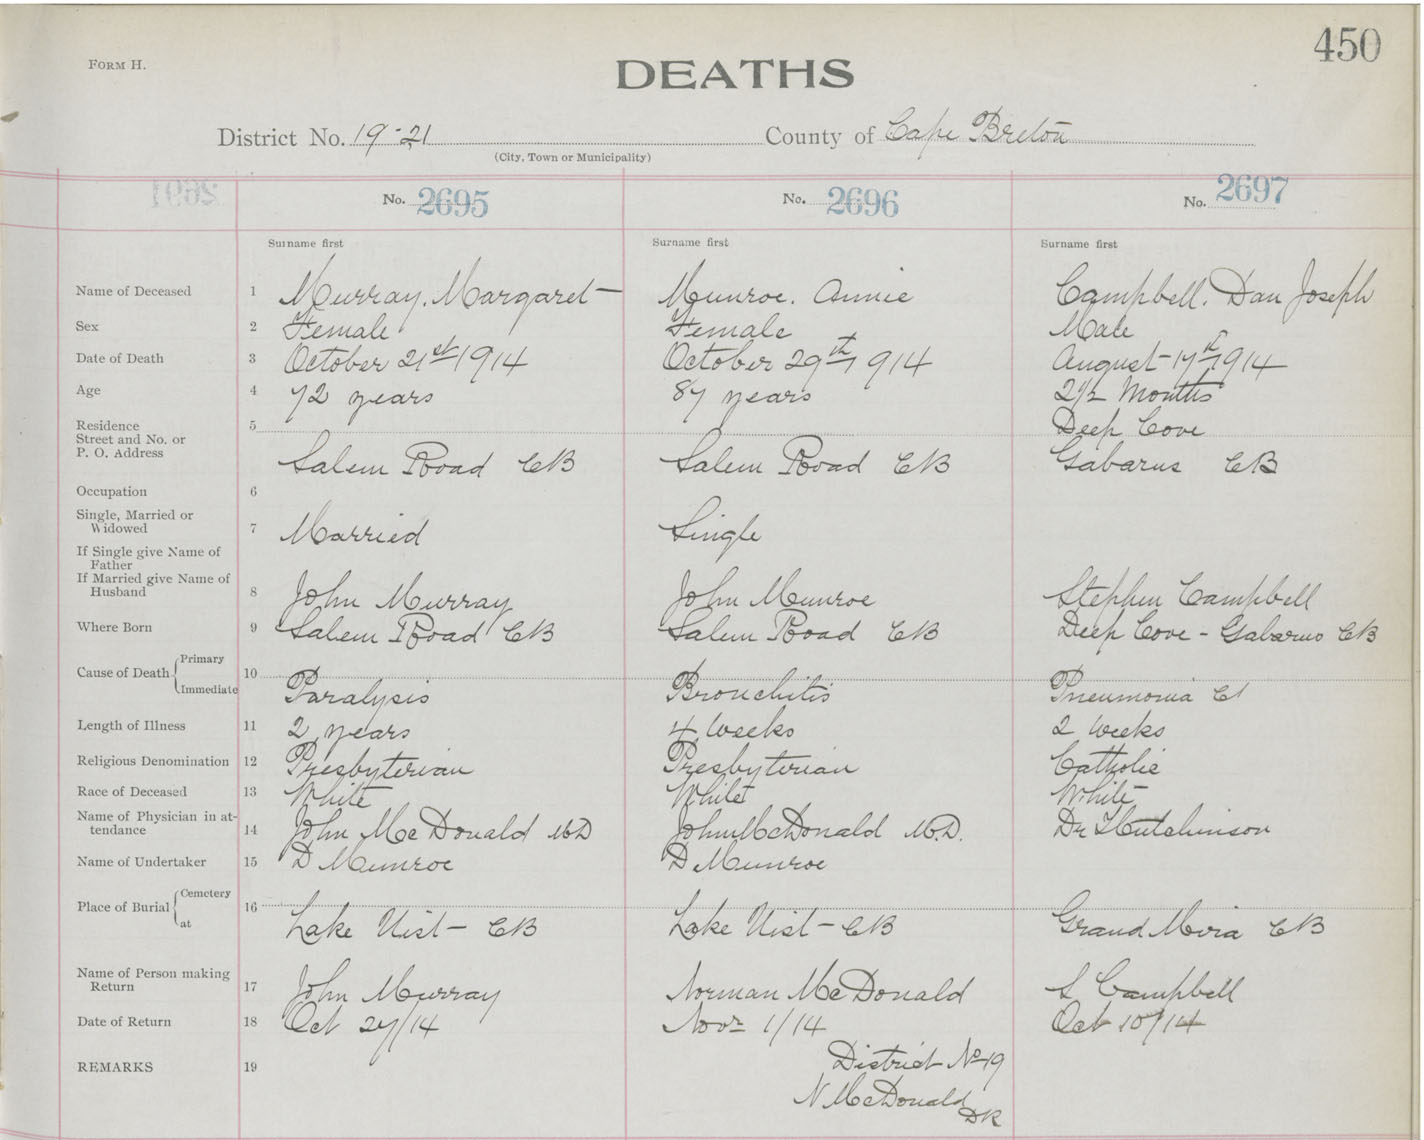 450
FORM H.
DEATHS
District No. 19-21 County of Cape Breton
(City, Town or Municipality)
No. 2695 No. 2696 No. 2697
Surname first Surname first Surname first
Name of Deceased 1 Murray. Margaret Munroe. Annie Campbell. Dan Joseph
Sex 2 Female Female Male
Date of Death 3 October 21st 1914 October 29th 1914 August 17th 1914
Age 4 72 years 87 years 2 1/2 Months
Residence 5 Deep Cove
Street and No. or
P. O. Address Salem Road CB Salem Road CB Gabarus CB
Occupation 6
Single, Married or
Widowed 7 Married Single
If Single give Name of
Father
If Married give Name of
Husband 8 John Murray John Munroe Stephen Campbell
Where Born 9 Salem Road CB Salem Road CB Deep Cove - Gabarus CB
Cause of Death Primary 10
Immediate Paralysis Bronchitis Pneumonia
Length of Illness 11 2 years 4 weeks 2 weeks
Religious Denomination 12 Presbyterian Presbyterian Catholic
Race of Deceased 13 White White White
Name of Physician in at-
tendance 14 John McDonald MD John McDonald M.D. Dr Hutchinson
Name of Undertaker 15 D Munroe D Munroe
Place of Burial Cemetery 16
at Lake Uist - CB Lake Uist - CB Grand Mira CB
Name of Person making
Return 17 John Murray Norman McDonald S Campbell
Date of Return 18 Oct 27/14 Novr 1/14 Oct 10/14
REMARKS 19 District No 19
N McDonald
DR